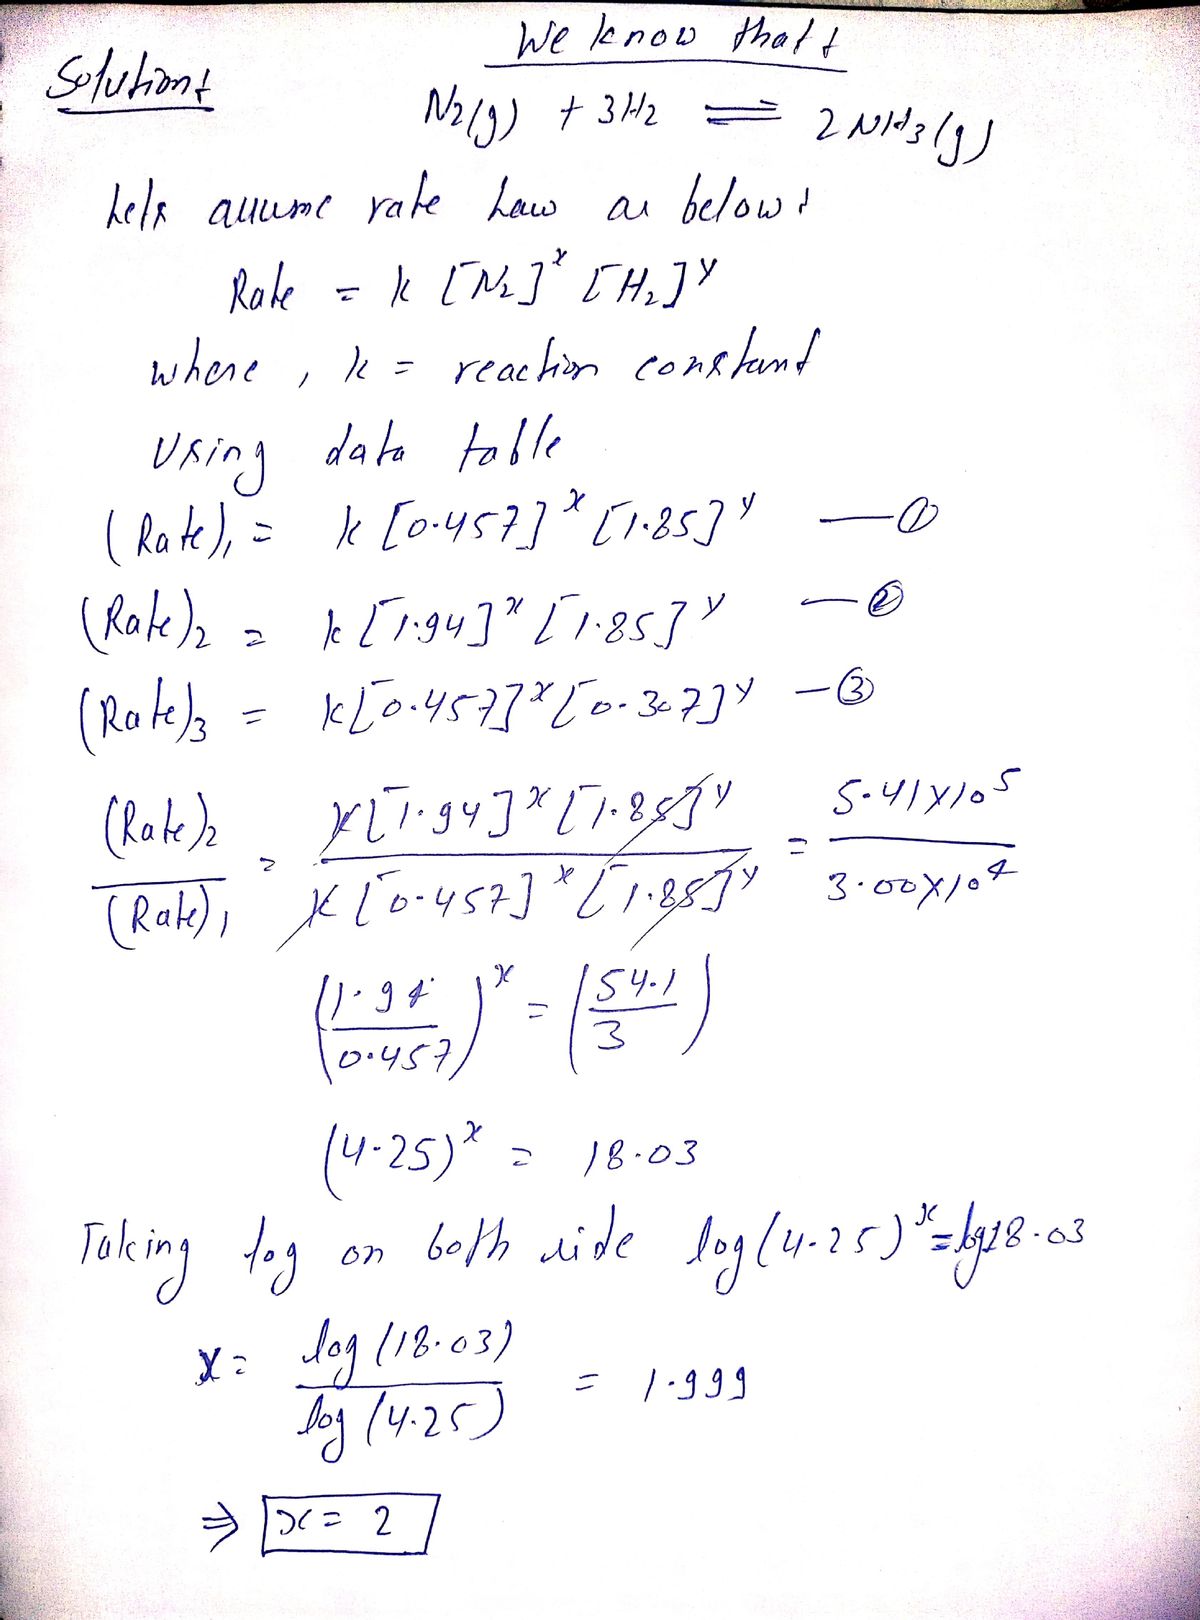 We know that :
Solution :
N2(g) + 3H2 ⇌ 2NH3(g)
Lets assume rate Law as below :
Rate = k [N₂]ˣ [H₂]ʸ
where , k = reaction constant
Using data table
(Rate)₁ = k [0.457]ˣ [1.85]ʸ —①
(Rate)₂ = k [1.94]ˣ [1.85]ʸ —②
(Rate)₃ = k [0.457]ˣ [0.307]ʸ —③
(Rate)₂ / (Rate)₁ = k[1.94]ˣ [1.85]ʸ / k[0.457]ˣ [1.85]ʸ = 5.41×10⁵ / 3.00×10⁴
(1.94 / 0.457)ˣ = (54.1 / 3)
(4.25)ˣ = 18.03
Taking log on both side log(4.25)ˣ = log18.03
x = log(18.03) / log(4.25) = 1.999
⇒ x = 2